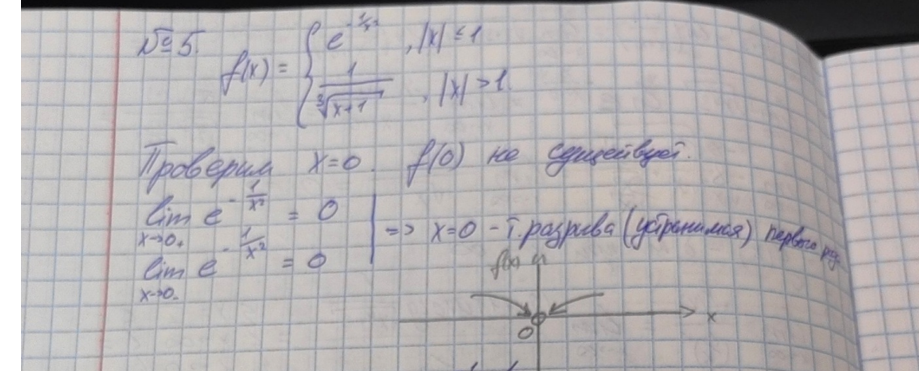 №5. f(x) = { e^{-1/x²}, |x| ≤ 1
1/∛(x+1), |x| > 1.
Проверим x=0. f(0) не существует.
lim x→0+ e^{-1/x²} = 0
lim x→0- e^{-1/x²} = 0 | => x=0 - т. разрыва (устранимая) первого рода
f(x)
0 x